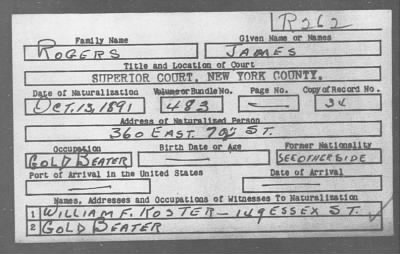 R262
Family Name Given Name or Names
ROGERS JAMES
Title and Location of Court
SUPERIOR COURT, NEW YORK COUNTY.
Date of Naturalization Volume or Bundle No. Page No. Copy of Record No.
OCT. 13, 1891 483 — 34
Address of Naturalized Person
360 EAST. 70 ST.
Occupation Birth Date or Age Former Nationality
GOLD BEATER — SEE OTHER SIDE
Port of Arrival in the United States Date of Arrival
— —
Names, Addresses and Occupations of Witnesses To Naturalization
1 WILLIAM F. KOSTER — 149 ESSEX ST.
2 GOLD BEATER